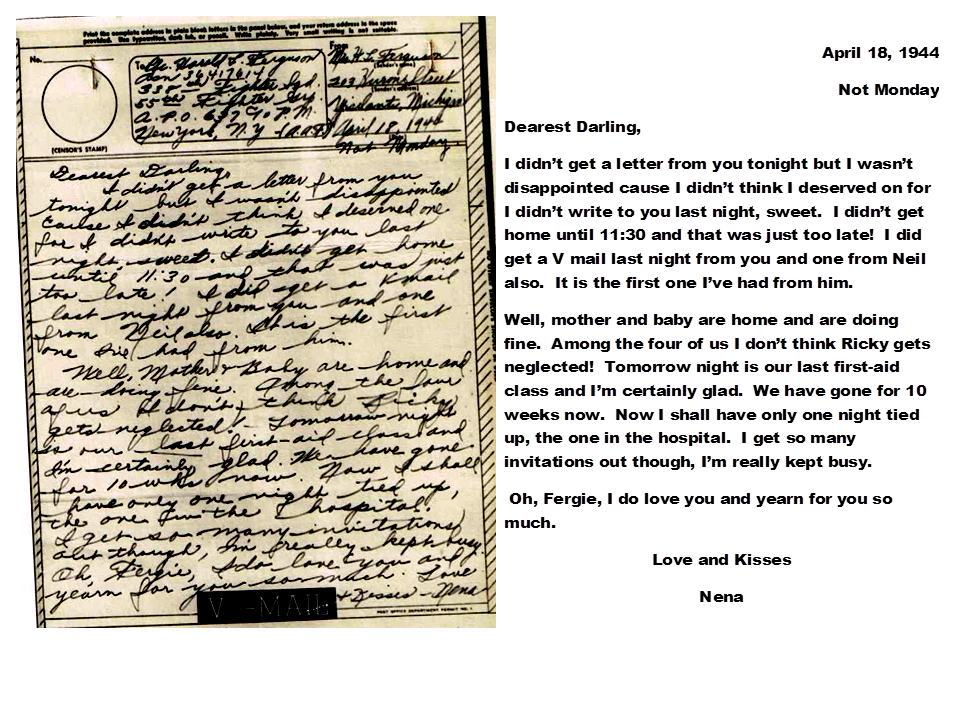 Print the complete address in plain block letters in the panel below, and your return address in the space
provided. Use typewriter, dark ink, or pencil. Write plainly. Very small writing is not suitable.
No.
(CENSOR'S STAMP)
To
Harold L. Ferguson
36417614
338th Fighter Sqd.
55th Fighter Grp.
A.P.O. 637 % P.M.
New York, N.Y. (A.A.F.)
From
H. L. Ferguson
(Sender's name)
203 Huron Street
(Sender's address)
Michigan
April 18, 1944
Not Monday
Dearest Darling,
I didn't get a letter from you
tonight but I wasn't disappointed
cause I didn't think I deserved one
for I didn't write to you last
night sweet. I didn't get home
until 11:30 and that was just
too late! I did get a V mail
last night from you and one
from Neil also. It is the first
one I've had from him.
Well, Mother & Baby are home and
are doing fine. Among the four
of us I don't think Ricky
gets neglected! Tomorrow night
is our last first-aid class and
I'm certainly glad. We have gone
for 10 wks now. Now I shall
have only one night tied up,
the one in the hospital.
I get so many invitations
out though, I'm really kept busy.
Oh, Fergie, I do love you and
yearn for you so much. Love
& Kisses - Nena
V-MAIL
POST OFFICE DEPARTMENT PERMIT NO. 1
April 18, 1944
Not Monday
Dearest Darling,
I didn't get a letter from you tonight but I wasn't
disappointed cause I didn't think I deserved on for
I didn't write to you last night, sweet.  I didn't get
home until 11:30 and that was just too late!  I did
get a V mail last night from you and one from Neil
also.  It is the first one I've had from him.
Well, mother and baby are home and are doing
fine.  Among the four of us I don't think Ricky gets
neglected!  Tomorrow night is our last first-aid
class and I'm certainly glad.  We have gone for 10
weeks now.  Now I shall have only one night tied
up, the one in the hospital.  I get so many
invitations out though, I'm really kept busy.
Oh, Fergie, I do love you and yearn for you so
much.
Love and Kisses
Nena